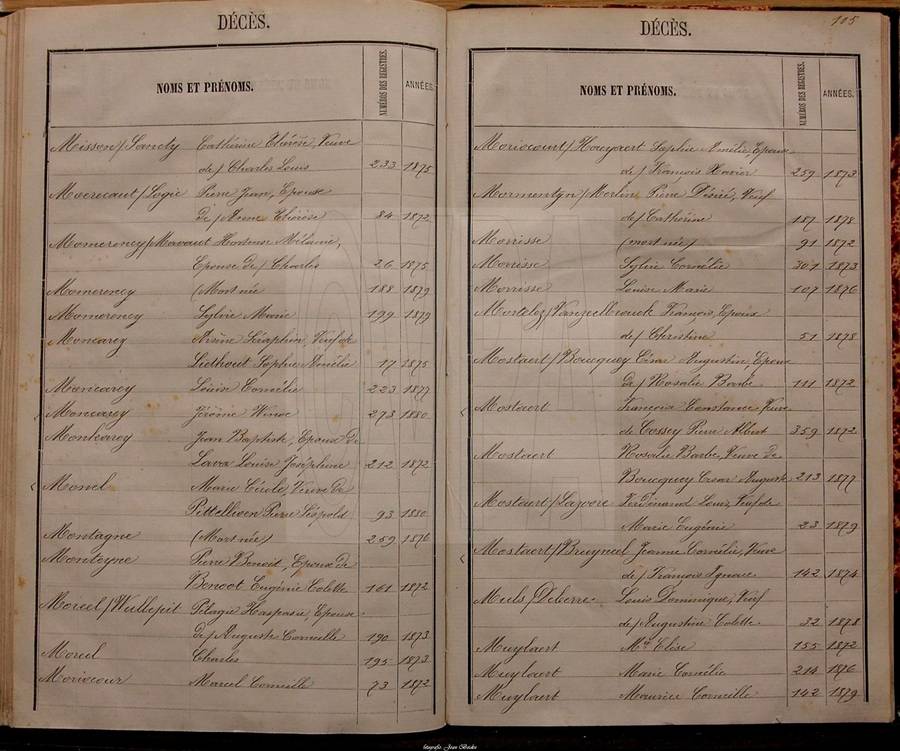 DÉCÈS.
NOMS ET PRÉNOMS. NUMÉROS DES REGISTRES. ANNÉES.
Catherine Thérèse, Veuve
de/ Charles Louis 233 1875
Pierre Jean, Epouse
de/ Anne Thérèse 84 1872
Momerency/ Mélanie,
Epouse de/ Charles 26 1875
Momerency (Mort née) 188 1879
Momerency Sylvie Marie 199 1879
Moncarey Séraphin, Veuf de
Liethout Sophie Amélie 17 1875
Moncarey Louis Cornélie 223 1877
Moncarey Jérôme Winoc 273 1880
Monkarey Jean Baptiste, Epoux de
Lava Louise Joséphine 212 1872
Monel Marie Cécile, Veuve de
Pittellioen Pierre Léopold 93 1880
Montagne (Mort née) 259 1876
Monteyne Pierre Benoit, Epoux de
Benoot Eugénie Colette 161 1872
Morcel/ Wullepit Pélagie Haspasie, Epouse
de/ Auguste Corneille 190 1873
Moreel Charles 195 1873
Moriocour Marcel Corneille 73 1872
DÉCÈS.
105
NOMS ET PRÉNOMS. NUMÉROS DES REGISTRES. ANNÉES.
Moriocourt/ Houyaert Sophie Amélie Epouse
de/ François Xavier 259 1873
Mormentyn/ Merlin Pierre Désiré, Veuf
de/ Cathérine 187 1878
Morrisse (mort née) 91 1872
Morrisse Sylvie Cornélie 301 1873
Morrisse Louise Marie 107 1876
Mortelez/ Vanzeebrouck François, Epoux
de/ Christine 51 1878
Mostaert/ Boucquey César Augustin, Epoux
de/ Rosalie Barbe 111 1872
Mostaert Françoise Constance Veuve
de Cossey Pierre Albert 359 1872
Mostaert Rosalie Barbe, Veuve de
Boucquey César Auguste 213 1877
Mostaert/ Lazoore Ferdinand Louis, Veuf de
Marie Eugénie 23 1879
Mostaert/ Bruyneel Jeanne Cornélie, Veuve
de/ François Ignace 142 1874
Muls/ Deberre Louis Dominique, Veuf
de/ Augustine Colette 32 1878
Muylaert Mie Elise 155 1872
Muylaert Marie Cornélie 214 1876
Muylaert Maurice Corneille 142 1879
fotografie Jean Bockx